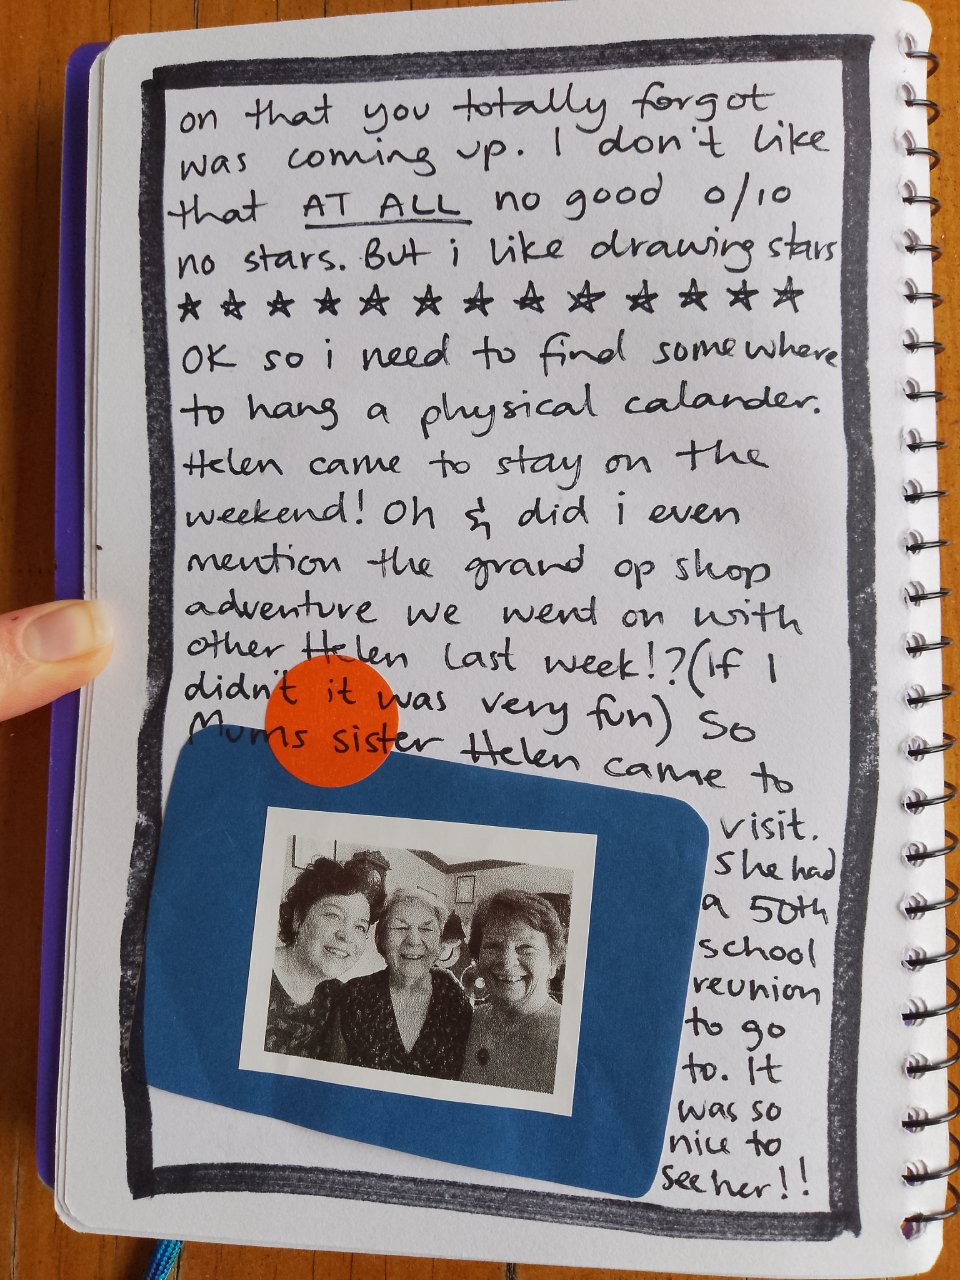 on that you totally forgot
was coming up. I don't like
that AT ALL no good 0/10
no stars. But i like drawing stars
☆ ☆ ☆ ☆ ☆ ☆ ☆ ☆ ☆ ☆ ☆ ☆ ☆
OK so i need to find somewhere
to hang a physical calander.
Helen came to stay on the
weekend! Oh & did i even
mention the grand op shop
adventure we went on with
other Helen last week!?(If I
didn't it was very fun) So
Mums sister Helen came to
visit.
She had
a 50th
school
reunion
to go
to. It
was so
nice to
see her!!